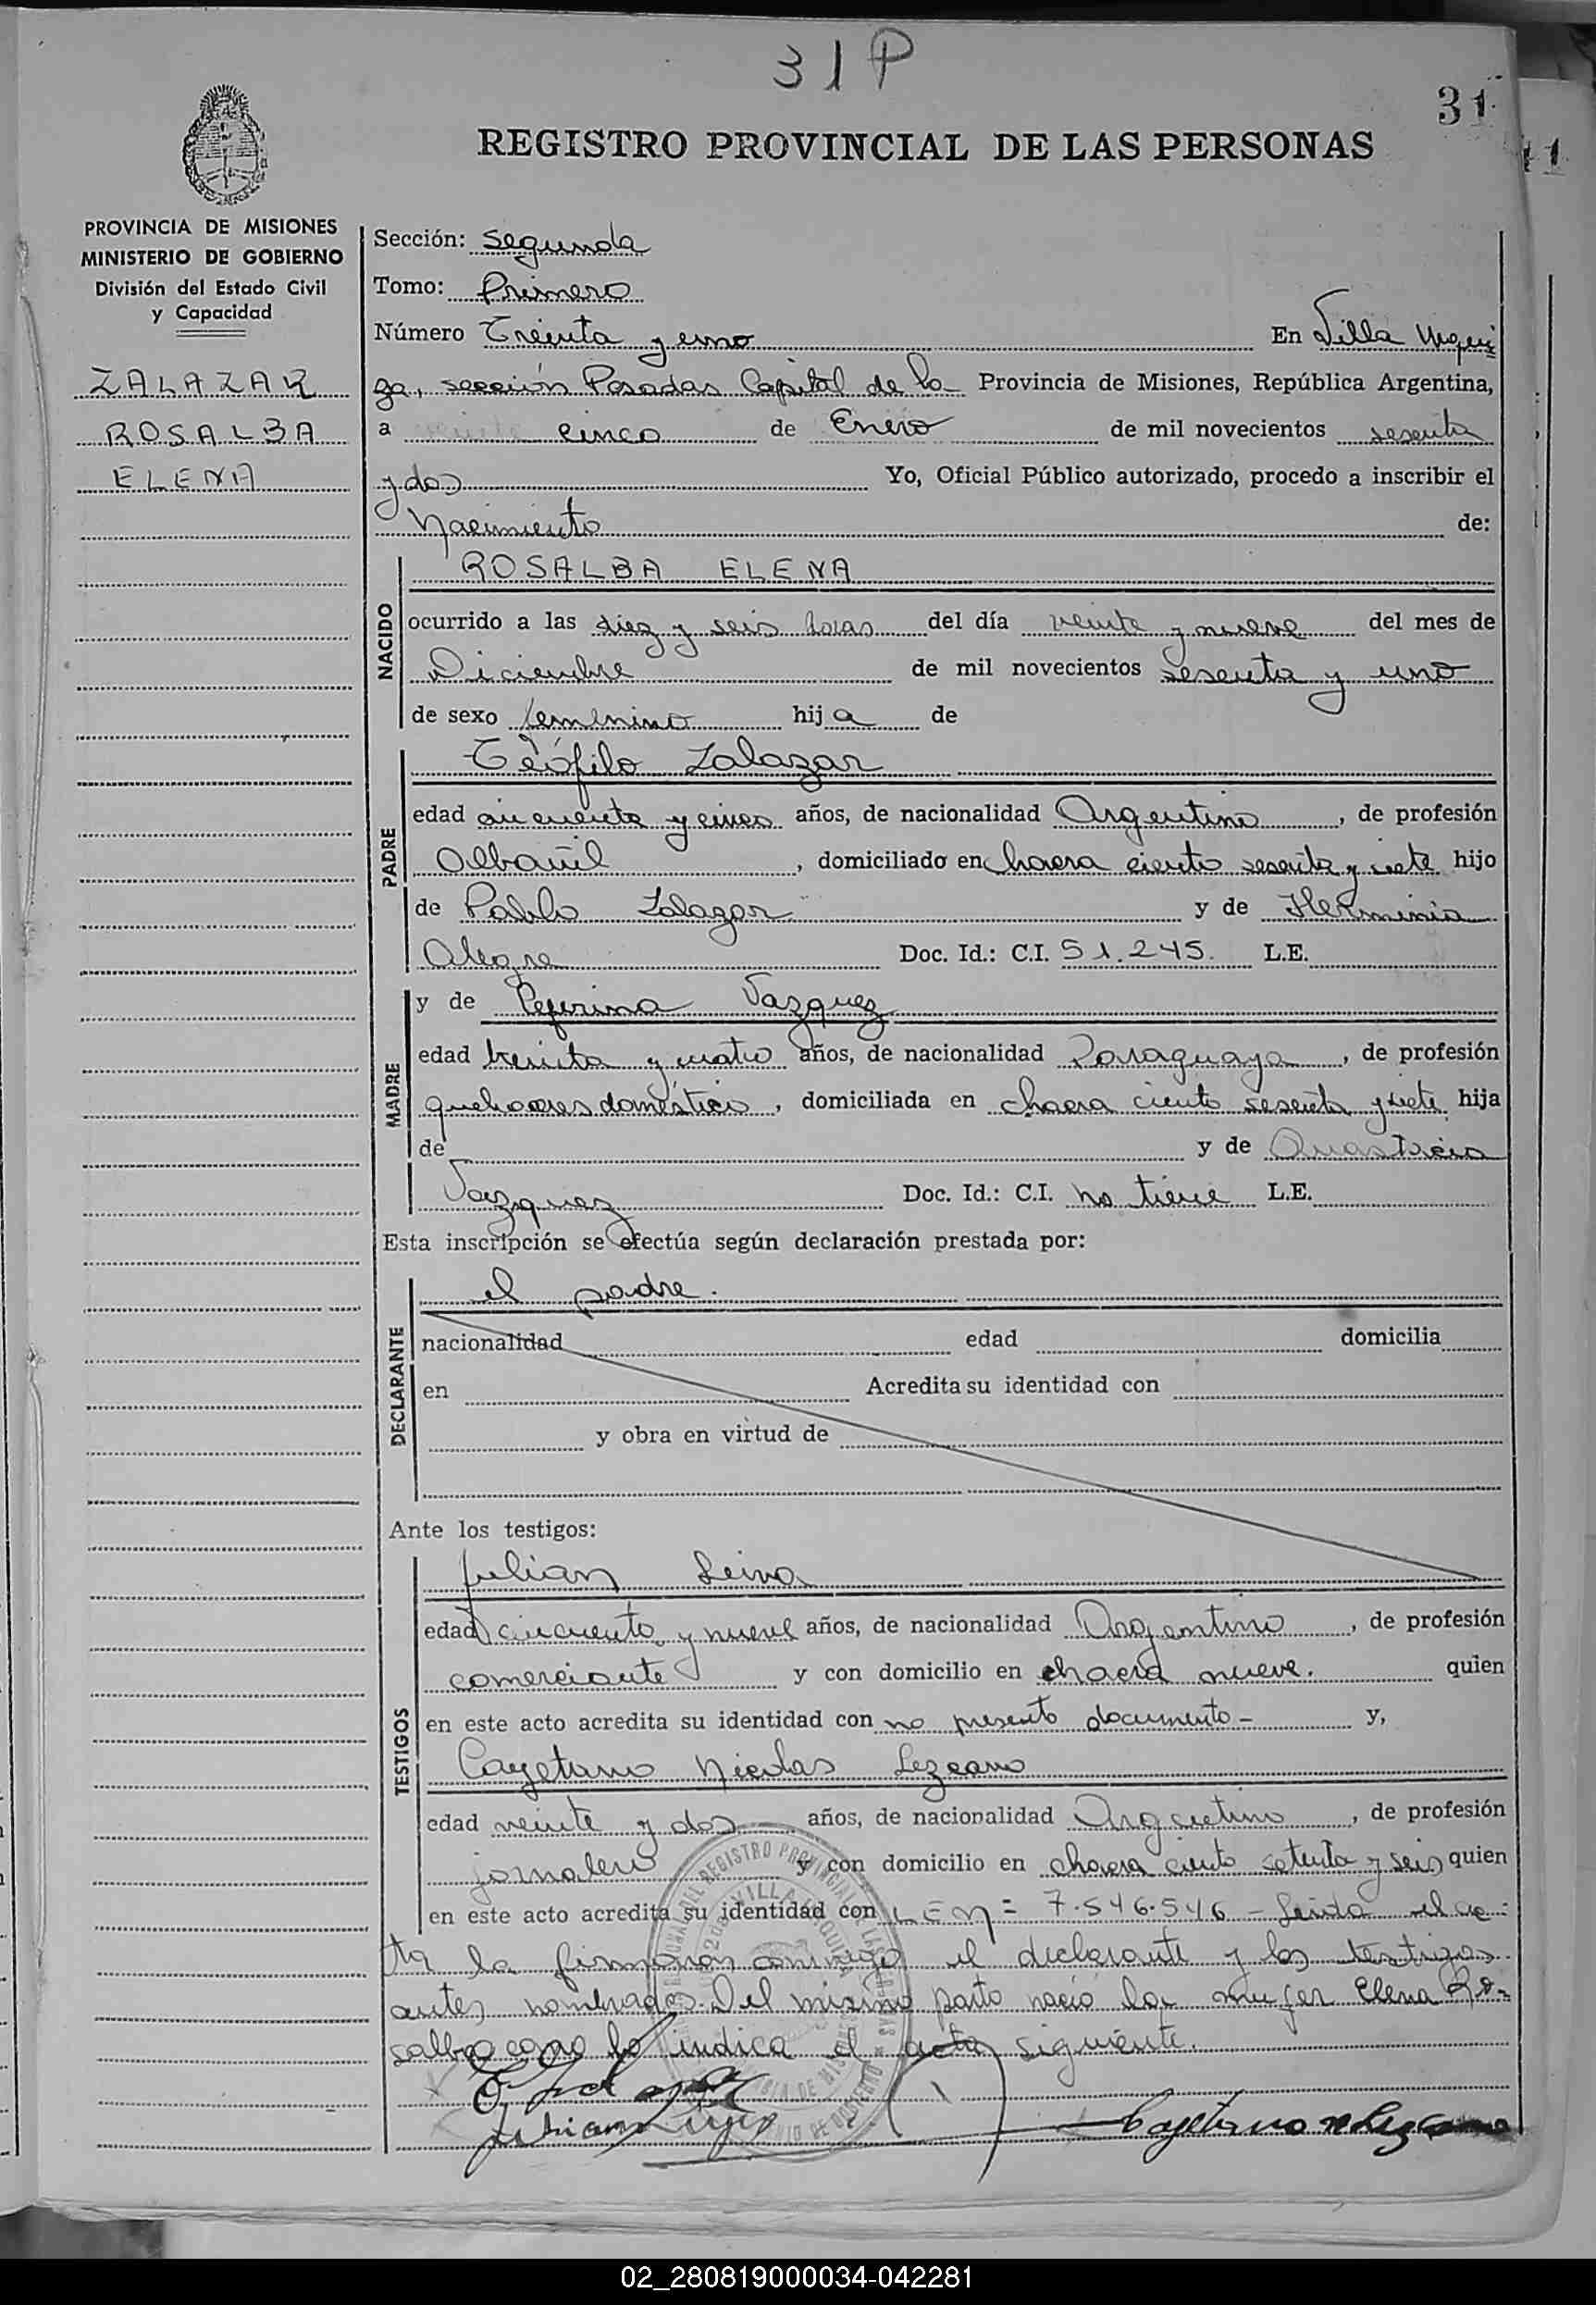 31P
31
REGISTRO PROVINCIAL DE LAS PERSONAS
PROVINCIA DE MISIONES
MINISTERIO DE GOBIERNO
División del Estado Civil
y Capacidad
ZALAZAR
ROSALBA
ELENA
Sección: Segunda
Tomo: Primero
Número Treinta y uno En Villa Urqui
za, sección Posadas Capital de la Provincia de Misiones, República Argentina,
a cinco de Enero de mil novecientos sesenta
y dos Yo, Oficial Público autorizado, procedo a inscribir el
Nacimiento de:
NACIDO
ROSALBA ELENA
ocurrido a las diez y seis horas del día veinte y nueve del mes de
Diciembre de mil novecientos sesenta y uno
de sexo femenino hija de
PADRE
Teófilo Zalazar
edad cincuenta y cinco años, de nacionalidad Argentino, de profesión
Albañil, domiciliado en chacra ciento sesenta y siete hijo
de Pablo Zalazar y de Herminia
Alegre Doc. Id.: C.I. 51.245. L.E.
MADRE
y de Ceferina Vazquez
edad treinta y cuatro años, de nacionalidad Paraguaya, de profesión
quehaceres domésticos, domiciliada en chacra ciento sesenta y siete hija
de y de
Vazquez Doc. Id.: C.I. no tiene L.E.
Esta inscripción se efectúa según declaración prestada por:
DECLARANTE
el padre.
nacionalidad edad domicilia
en Acredita su identidad con
y obra en virtud de
Ante los testigos:
TESTIGOS
Julian Leiva
edad cincuenta y nueve años, de nacionalidad Argentino, de profesión
comerciante y con domicilio en chacra nueve. quien
en este acto acredita su identidad con no presentó documento - y,
Cayetano Nicolas Lezcano
edad veinte y dos años, de nacionalidad Argentino, de profesión
jornalero y con domicilio en chacra ciento setenta y seis quien
en este acto acredita su identidad con L E Nº 7.546.546 - Leida el ac-
ta la firmaron conmigo el declarante y los testigos
antes nombrados. Del mismo parto nació la mujer Elena Ro-
salba como lo indica el acta siguiente.
Cayetano N Lezcano
02_280819000034-042281